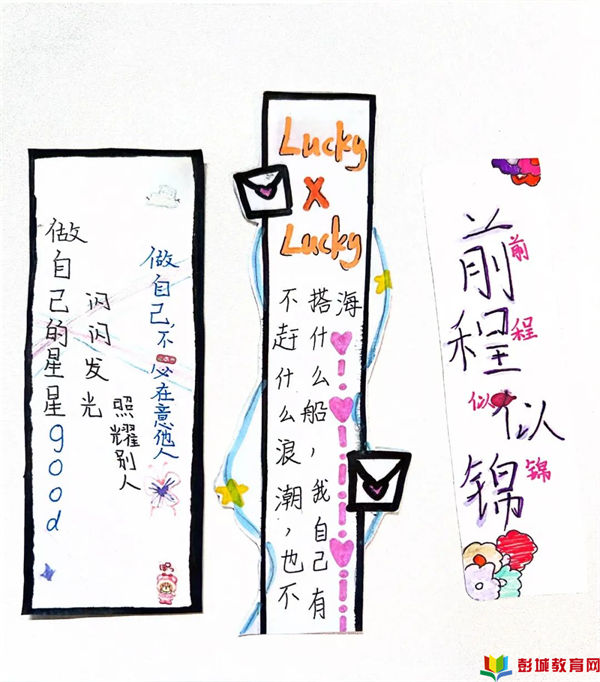 做自己的星星good
闪闪发光
照耀别人
做自己,不必在意他人
Lucky
X
Lucky
不赶什么浪潮，也不
搭什么船，我自己有
海
前程似锦
前程似锦
彭城教育网